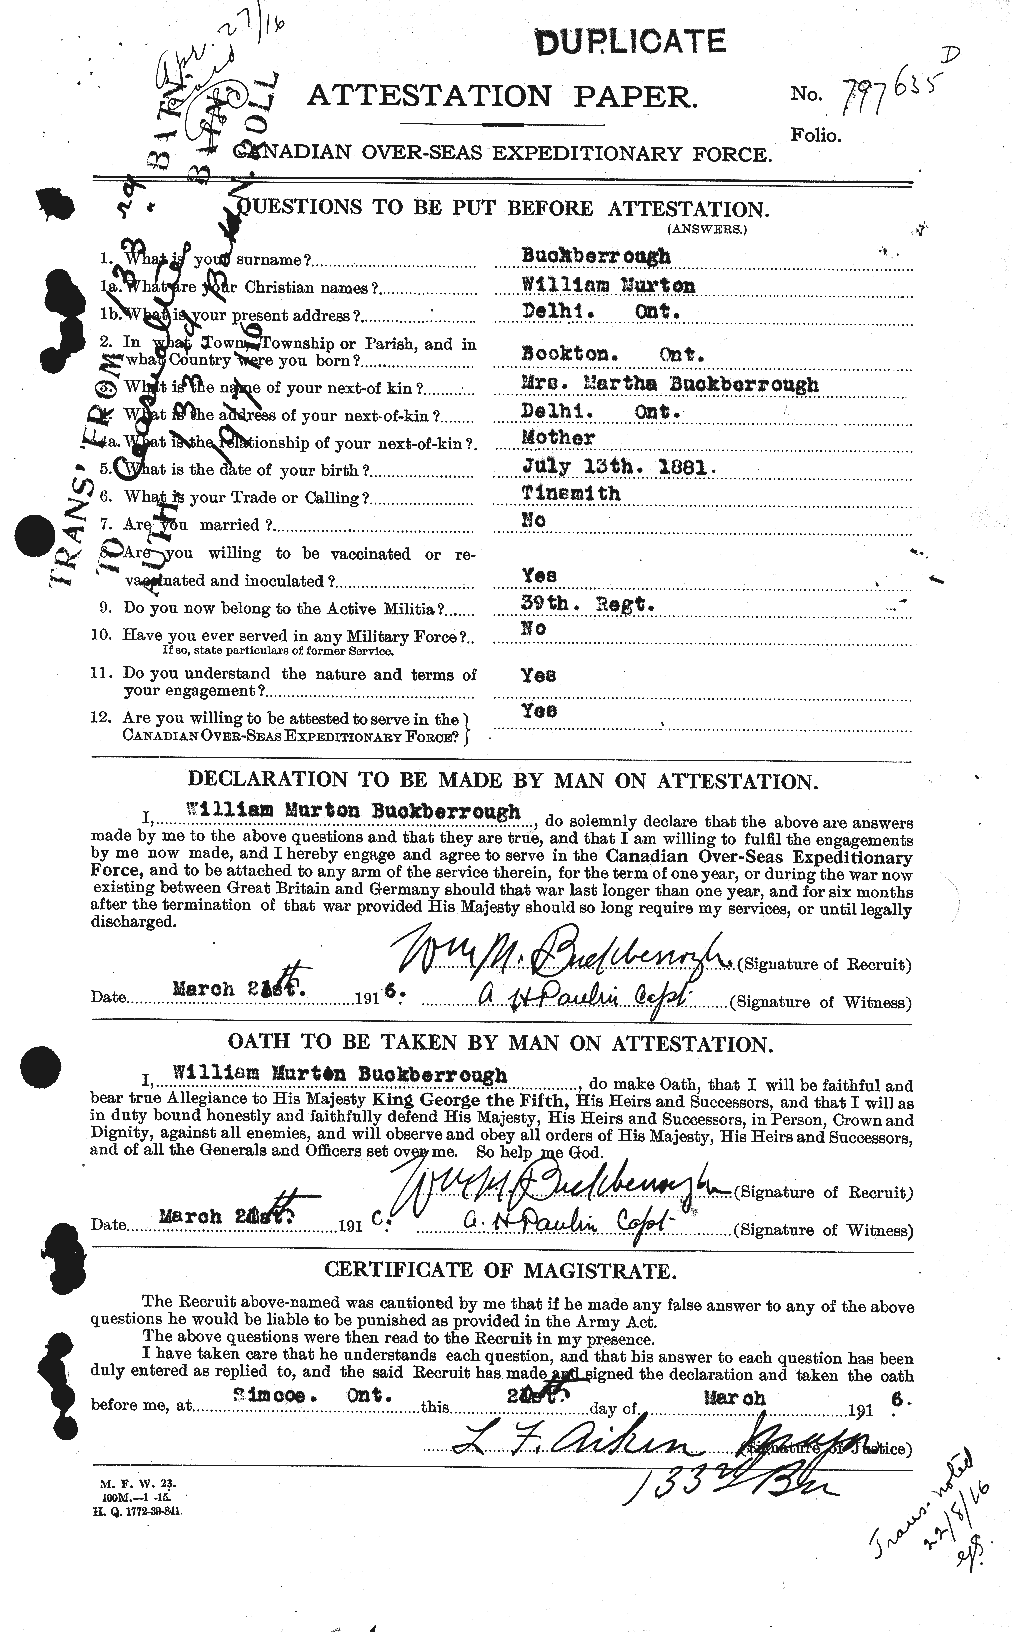 DUPLICATE
Apr. 27/16
ATTESTATION PAPER.
No. 797635 D
Folio.
CANADIAN OVER-SEAS EXPEDITIONARY FORCE.
TRANS' FROM 133rd BATN.
TO Casualties BATN.
AUTH 133rd Batn. N. ROLL
19/7/16
QUESTIONS TO BE PUT BEFORE ATTESTATION.
(ANSWERS.)
1. What is your surname? Buckberrough
1a. What are your Christian names? William Murton
1b. What is your present address? Delhi. Ont.
2. In what Town, Township or Parish, and in
what Country were you born? Bookton. Ont.
3. What is the name of your next-of kin? Mrs. Martha Buckberrough
4. What is the address of your next-of-kin? Delhi. Ont.
4a. What is the relationship of your next-of-kin? Mother
5. What is the date of your birth? July 13th. 1881.
6. What is your Trade or Calling? Tinsmith
7. Are you married? No
8. Are you willing to be vaccinated or re-
vaccinated and inoculated? Yes
9. Do you now belong to the Active Militia? 39th. Regt.
10. Have you ever served in any Military Force? No
If so, state particulars of former Service.
11. Do you understand the nature and terms of
your engagement? Yes
12. Are you willing to be attested to serve in the
CANADIAN OVER-SEAS EXPEDITIONARY FORCE? Yes
DECLARATION TO BE MADE BY MAN ON ATTESTATION.
I, William Murton Buckberrough, do solemnly declare that the above are answers
made by me to the above questions and that they are true, and that I am willing to fulfil the engagements
by me now made, and I hereby engage and agree to serve in the Canadian Over-Seas Expeditionary
Force, and to be attached to any arm of the service therein, for the term of one year, or during the war now
existing between Great Britain and Germany should that war last longer than one year, and for six months
after the termination of that war provided His Majesty should so long require my services, or until legally
discharged.
Wm M. Buckberrough (Signature of Recruit)
Date March 24th. 1916. A H Paulin Capt (Signature of Witness)
OATH TO BE TAKEN BY MAN ON ATTESTATION.
I, William Murton Buckberrough, do make Oath, that I will be faithful and
bear true Allegiance to His Majesty King George the Fifth, His Heirs and Successors, and that I will as
in duty bound honestly and faithfully defend His Majesty, His Heirs and Successors, in Person, Crown and
Dignity, against all enemies, and will observe and obey all orders of His Majesty, His Heirs and Successors,
and of all the Generals and Officers set over me. So help me God.
Wm M. Buckberrough (Signature of Recruit)
Date March 24th. 1916. A. H Paulin Capt (Signature of Witness)
CERTIFICATE OF MAGISTRATE.
The Recruit above-named was cautioned by me that if he made any false answer to any of the above
questions he would be liable to be punished as provided in the Army Act.
The above questions were then read to the Recruit in my presence.
I have taken care that he understands each question, and that his answer to each question has been
duly entered as replied to, and the said Recruit has made and signed the declaration and taken the oath
before me, at Simcoe. Ont. this 24th. day of March 1916.
L F. Aiken Major (Signature of Justice)
133rd Bn
M. F. W. 23.
100M.—1 -15.
H. Q. 1772-39-841.
Trans. noted
22/8/16